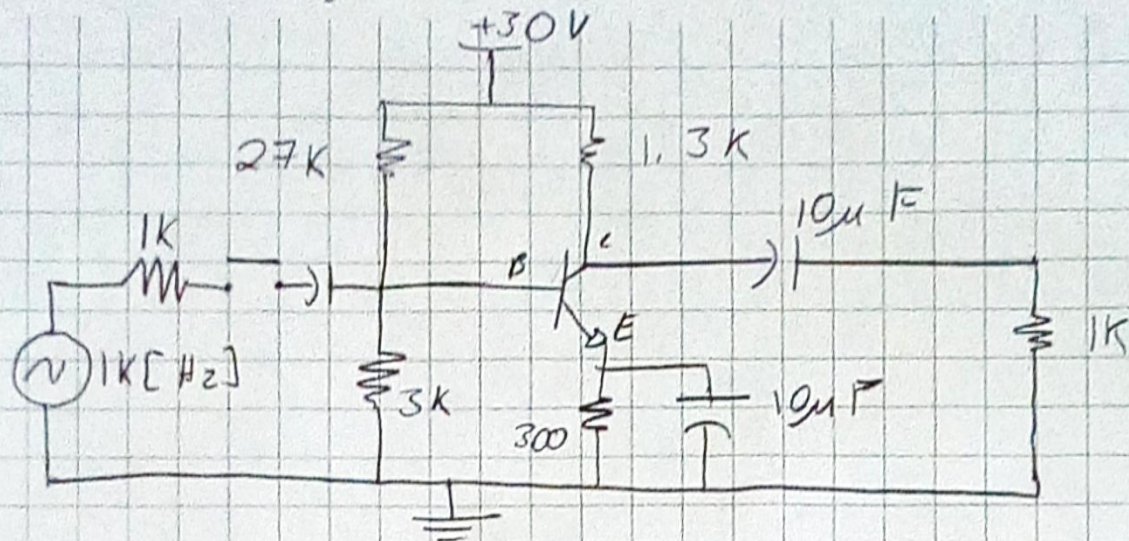 +30V
27K
1.3K
10μF
1K
B
C
E
1K[Hz]
1K
3K
300
10μF